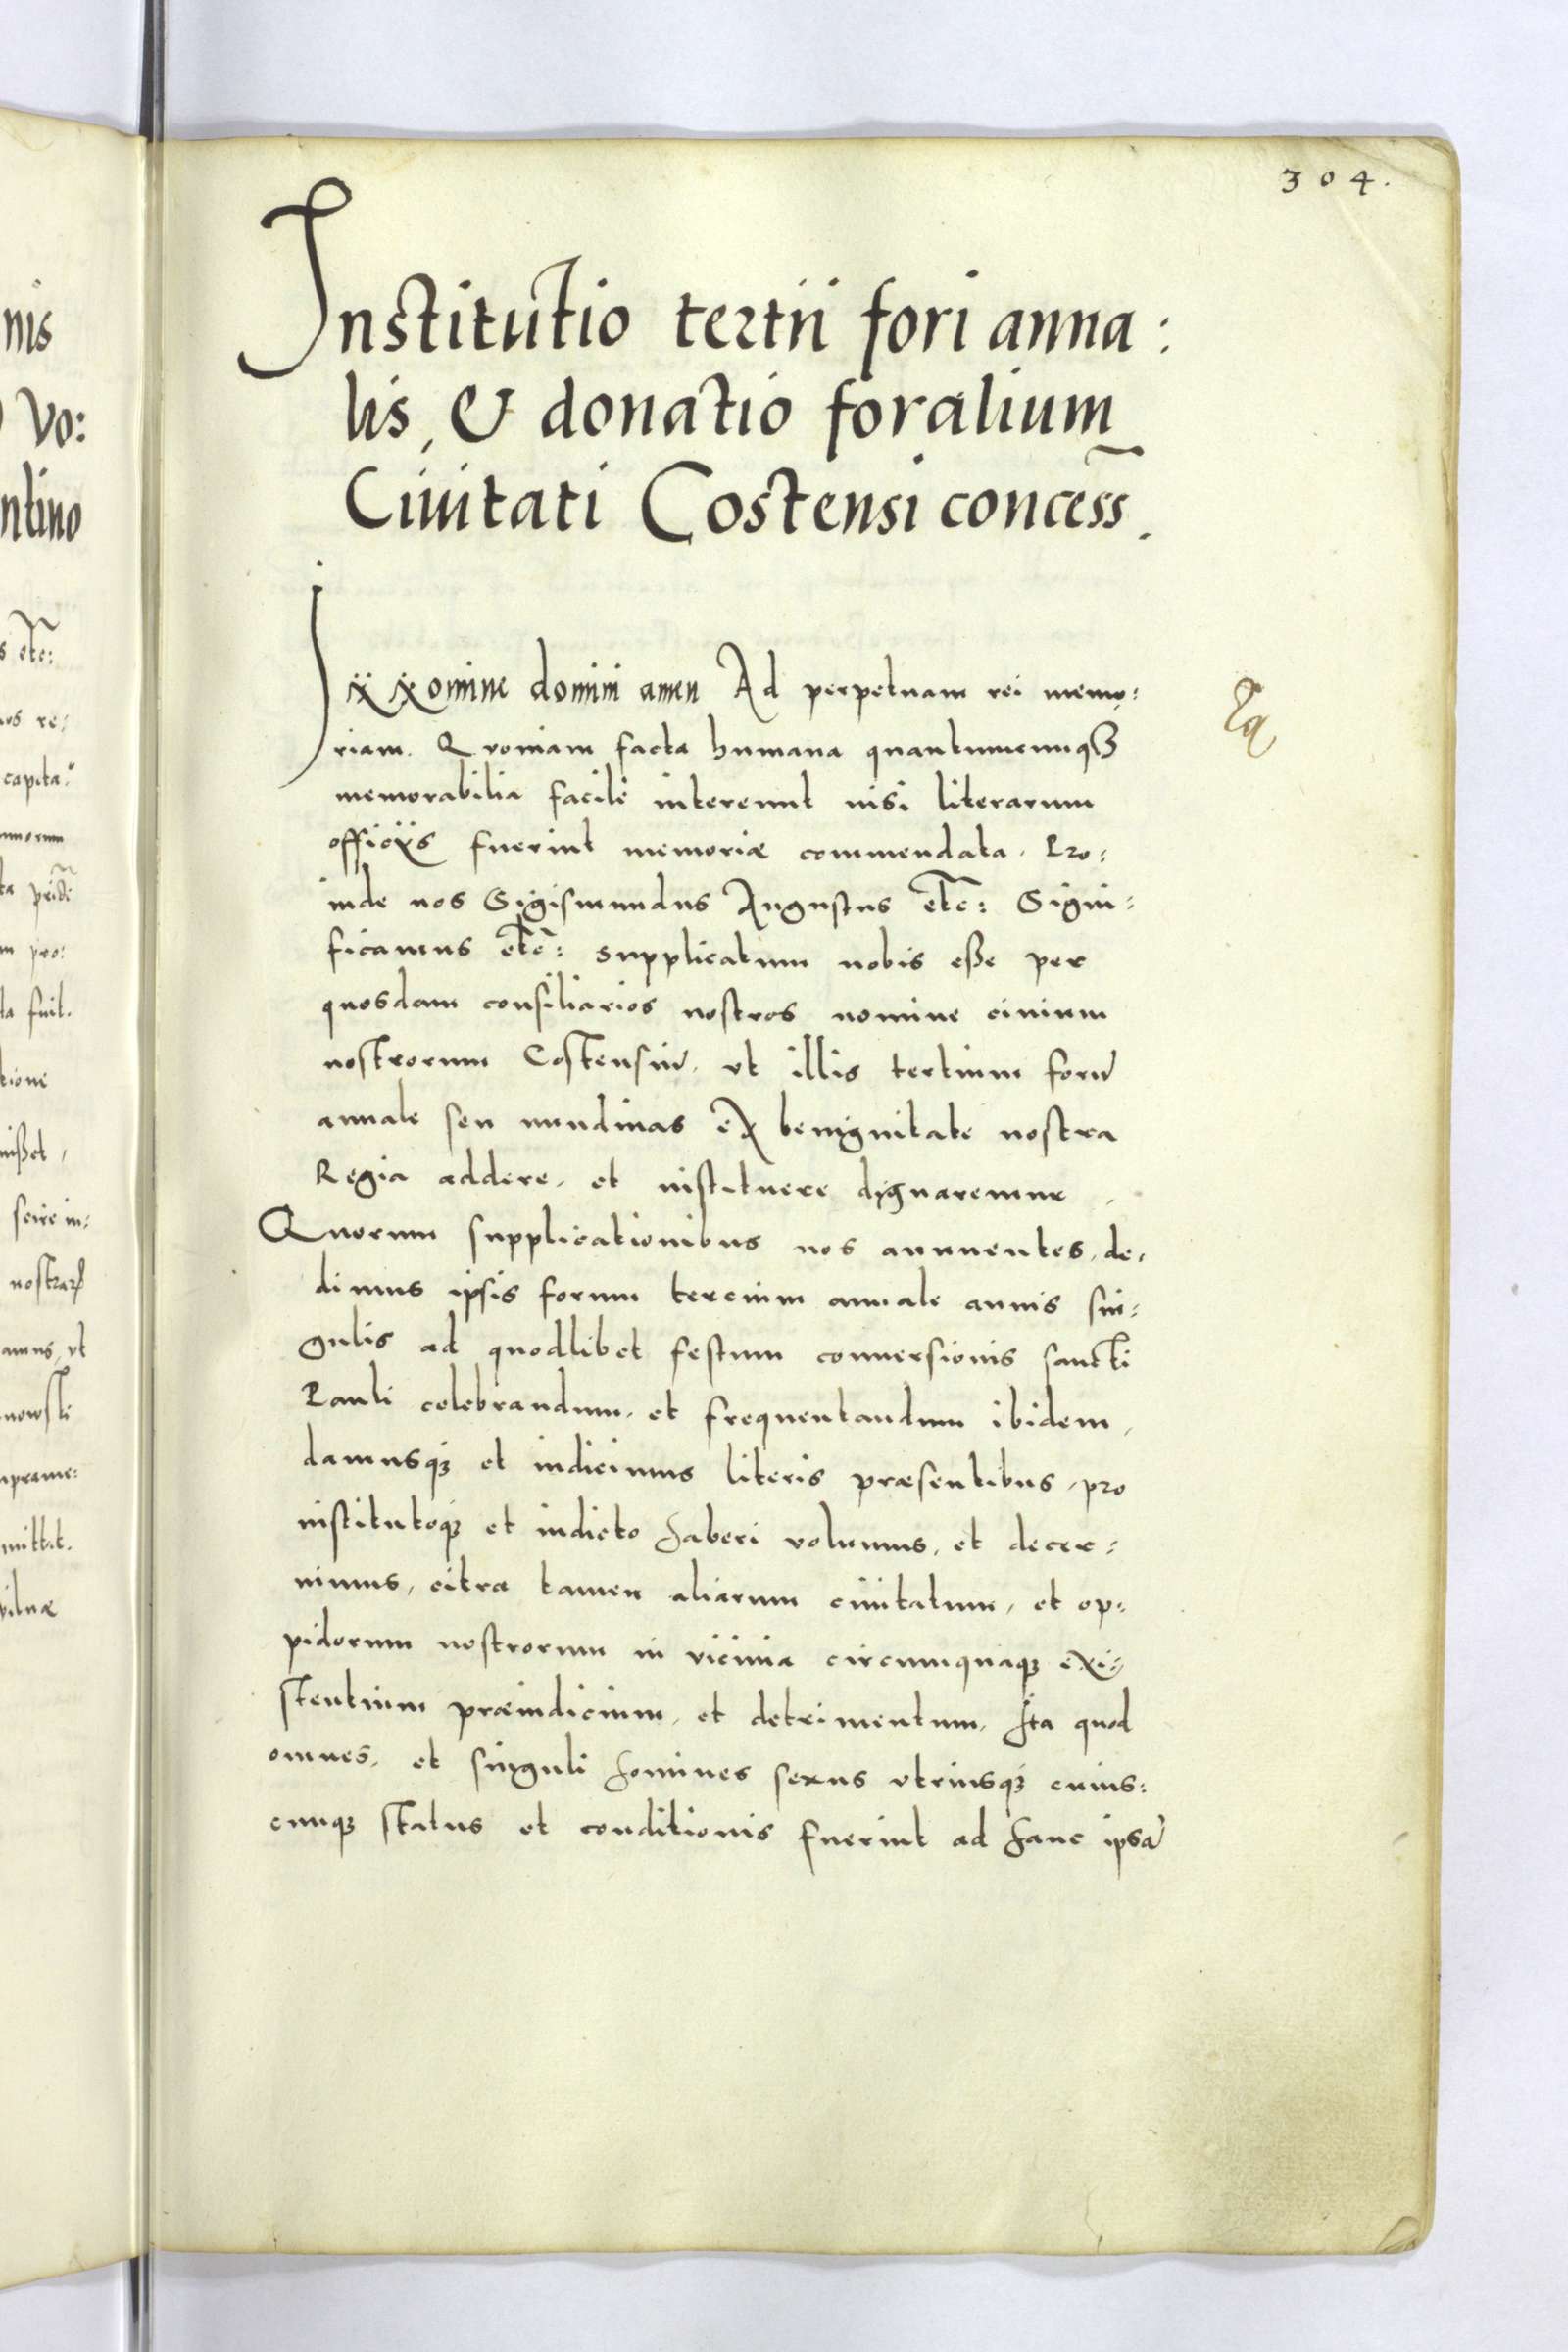 304.
Institutio tertii fori annа:
lis, & donatio foralium
Civitati Costensi concess̃.
In Nomine domini amen Ad perpetuam rei memo:
riam. Quoniam facta humana quantumcunqꝫ
memorabilia facile intereunt nisi literarum
officijs fuerint memoriæ commendata. Pro:
inde nos Sigismundus Augustus etc̃: Signi:
ficamus etc̃: supplicatum nobis eße per
quosdam consiliarios nostros nomine civium
nostrorum Costensiũ, ut illis tertium forũ
annale seu nundinas ex benignitate nostra
Regia addere, et instituere dignaremur,
Quorum supplicationibus nos annuentes, de:
dimus ipsis forum tercium annale annis sin:
gulis ad quodlibet festum conversionis sancti
Pauli celebrandum, et frequentandum ibidem,
damusqꝫ et indicimus literis præsentibus, pro
institutoqꝫ et indicto haberi volumus, et decer:
nimus, citra tamen aliarum civitatum, et op:
pidorum nostrorum in vicinia circumquaqꝫ exi:
stentium præiudicium, et detrimentum, Ita quod
omnes, et singuli homines sexus utriusqꝫ cuius:
cunqꝫ status et conditionis fuerint ad hanc ipsã